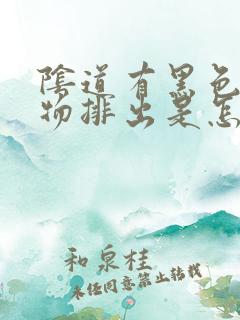 陰道有黑色
物排出是怎
和泉桂
未经同意禁止转载